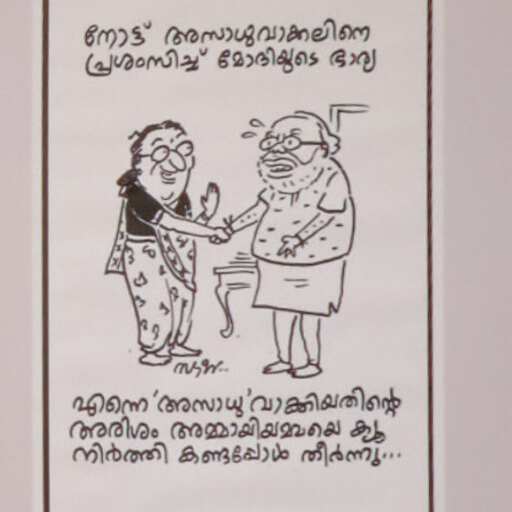 നോട്ട് അസാധുവാക്കലിനെ
പ്രശംസിച്ച് മോദിയുടെ ഭാര്യ
എന്നെ 'അസാധു' വാക്കിയതിന്റെ
അരിശം അമ്മായിയമ്മയെ ക്യൂ
നിർത്തി കണ്ടപ്പോൾ തീർന്നു...